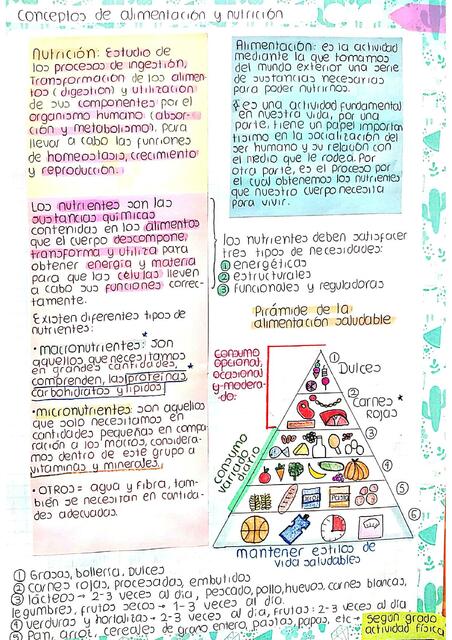 Conceptos de alimentación y nutrición
Nutrición: Estudio de
los procesos de ingestión,
Transformación de los alimen-
tos (digestión) y utilización
de sus componentes por el
organismo humano (absor-
ción y metabolismo). Para
llevar a cabo las funciones
de homeostasis, crecimiento
y reproducción.
Los nutrientes son las
sustancias químicas
contenidas en los alimentos
que el cuerpo descompone,
transforma y utiliza para
obtener energía y materia
para que las células lleven
a cabo sus funciones correc-
tamente.
Existen diferentes tipos de
nutrientes:
• macronutrientes: son
aquellos que necesitamos
en grandes cantidades,
comprenden, las proteínas,
carbohidratos y lípidos
• micronutrientes: son aquellos
que solo necesitamos en
cantidades pequeñas en compa-
ración a los macros, considera-
mos dentro de este grupo a
vitaminas y minerales.
• OTROS = agua y fibra, tam-
bién se necesitan en cantida-
des adecuadas.
Alimentación: es la actividad
mediante la que tomamos
del mundo exterior una serie
de sustancias necesarias
para poder nutrirnos.
Es una actividad fundamental
en nuestra vida, por una
parte, tiene un papel importan
tísimo en la socialización del
ser humano y su relación con
el medio que le rodea. Por
otra parte, es el proceso por
el cual obtenemos los nutrientes
que nuestro cuerpo necesita
para vivir.
los nutrientes deben satisfacer
tres tipos de necesidades:
① energéticas
② estructurales
③ funcionales y reguladoras
Pirámide de la
alimentación saludable
Consumo
opcional,
ocasional
y modera-
do:
consumo
variado
diario
① Dulces
② Carnes
Rojas
③
④
⑤
⑥
mantener estilos de
vida saludables
① Grasas, bollería, Dulces
② Carnes rojas, procesadas, embutidos
③ lácteos → 2-3 veces al día, Pescado, pollo, huevos, carnes blancas,
legumbres, frutos secos → 1-3 veces al día.
④ verduras y hortalizas → 2-3 veces al día, frutas: 2-3 veces al día
⑤ Pan, arroz, cereales de grano entero, pastas, papas, etc →
según grado
actividad física